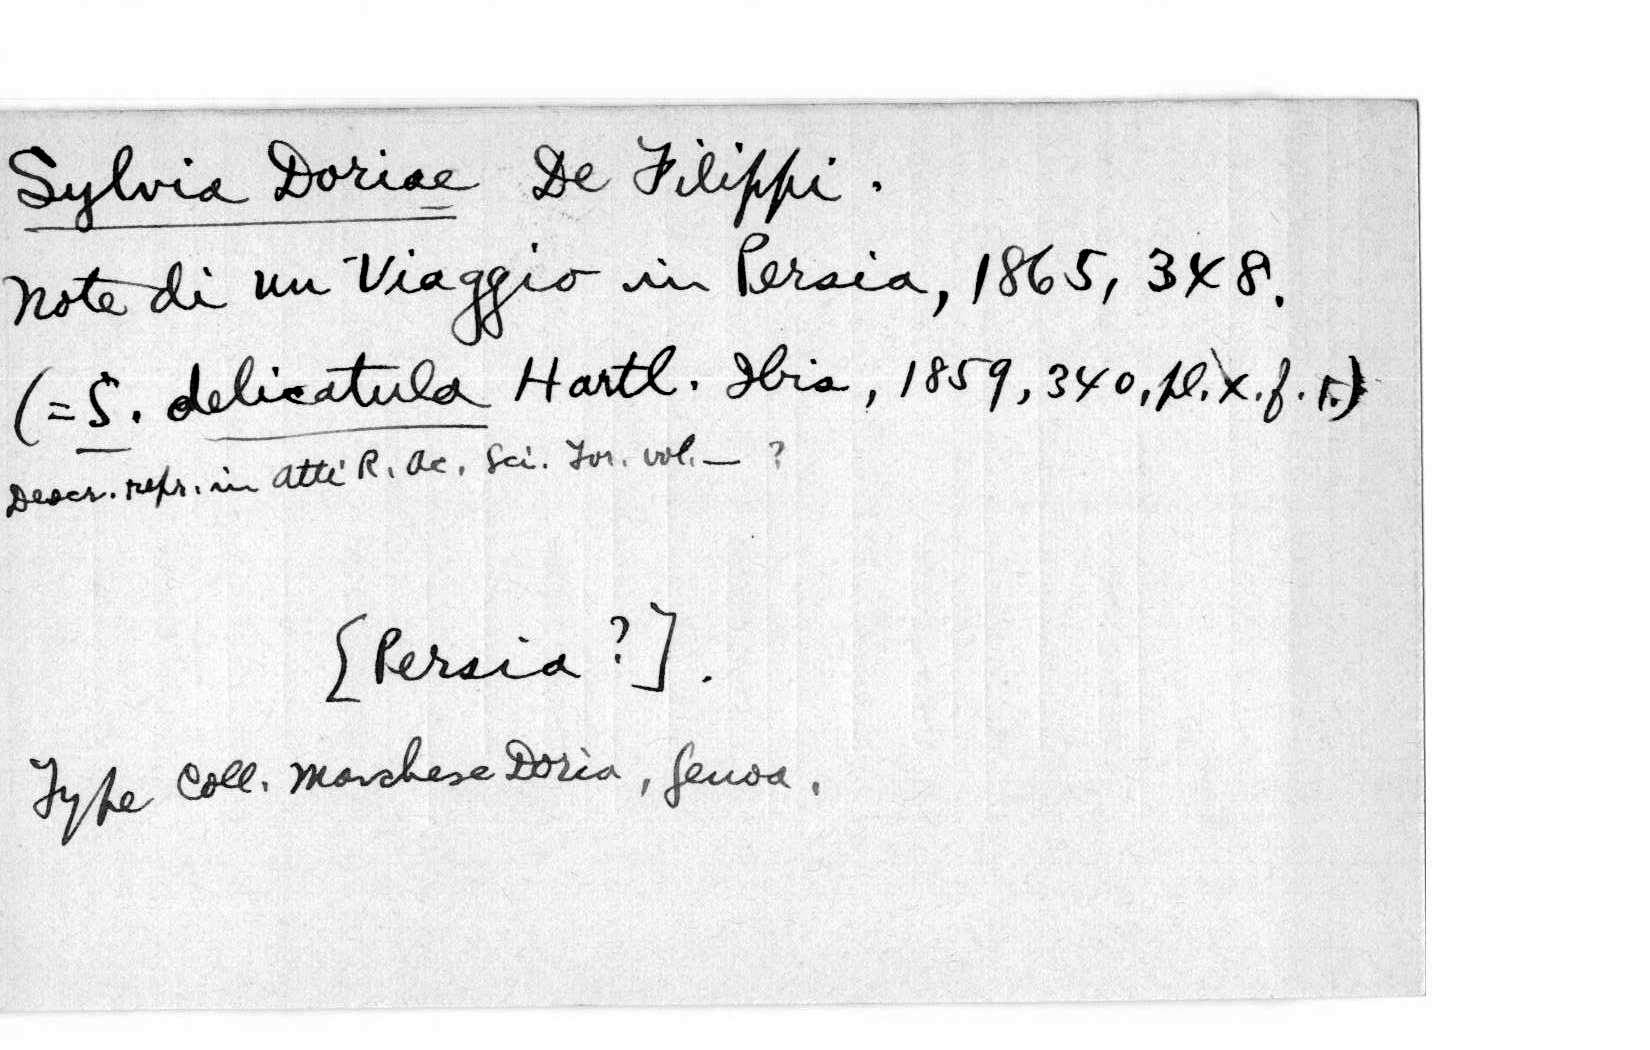 Sylvia Doriae De Filippi.
Note di un Viaggio in Persia, 1865, 348.
(=S. delicatula Hartl. Ibis, 1859, 340, pl. x. f. 1.)
Descr. repr. in Atti R. Ac. Sci. Tor. vol. — ?
[Persia ?].
Type Coll. Marchese Doria, Genoa.